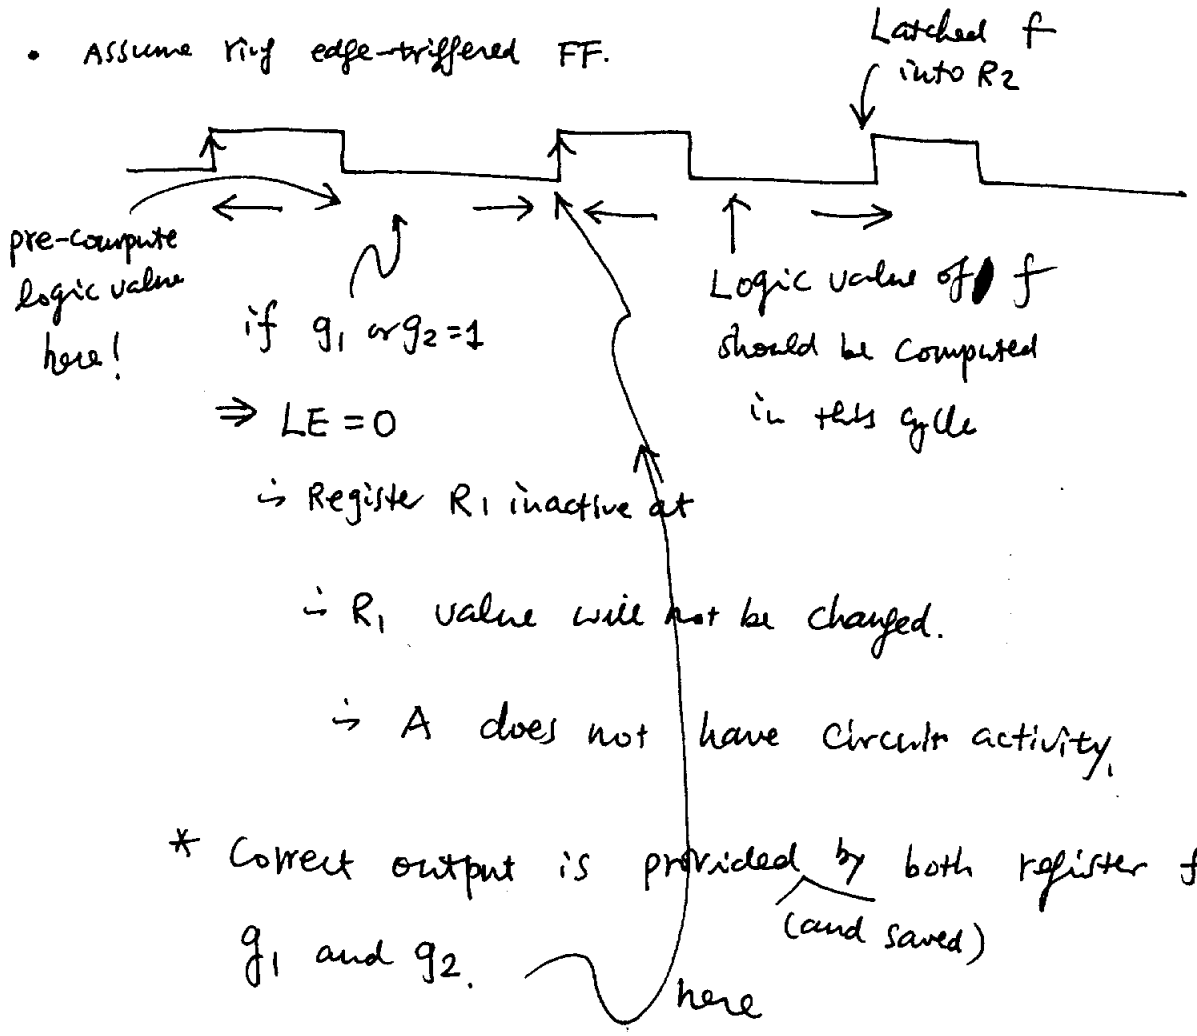 • Assume edge-triffered FF.
Latched f
into R2
pre-compute
logic value
here!
if g1 or g2 = 1
⇒ LE = 0
∴ Register R1 inactive at
∴ R1 value will not be changed.
∴ A does not have circuit activity.
Logic value of f
should be computed
in this cycle
* Correct output is provided by both register f
(and saved)
g1 and g2.
here